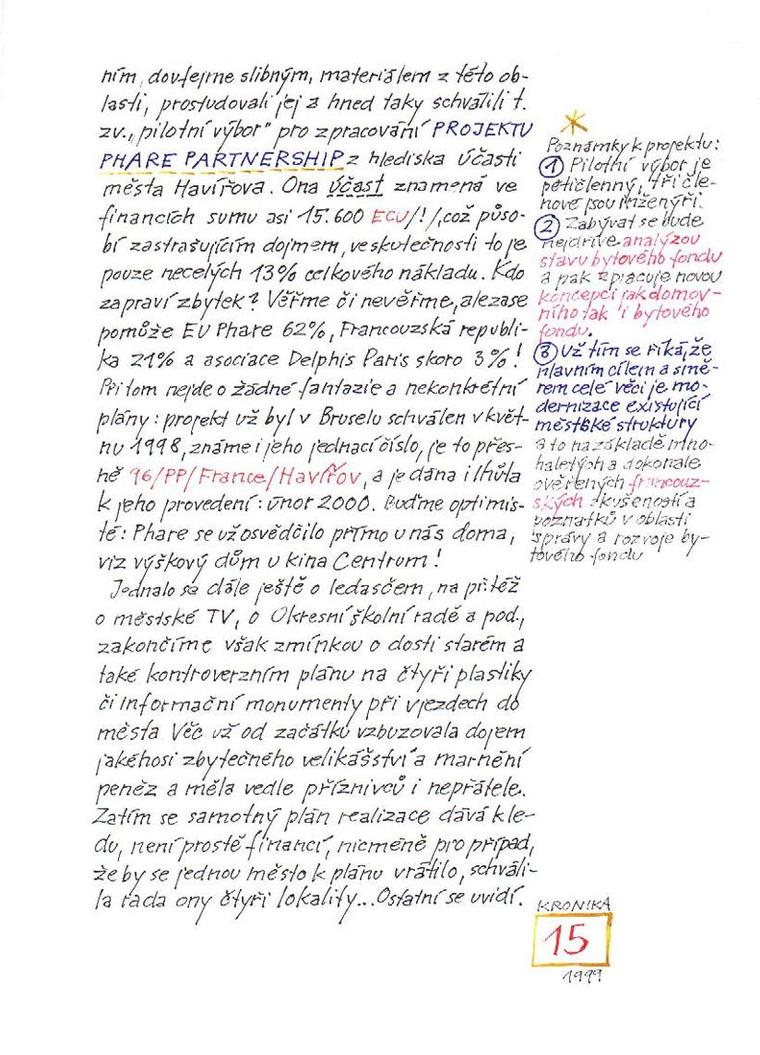 ním, doufejme slibným, materiálem z této ob-
lasti, prostudovali jej a hned taky schválili t.
zv. „pilotní výbor" pro zpracování PROJEKTU
PHARE PARTNERSHIP z hlediska účasti
města Havířova. Ona účast znamená ve
financích sumu asi 15.600 ECU/!/, což půso-
bí zastrašujícím dojmem, ve skutečnosti to je
pouze necelých 13% celkového nákladu. Kdo
zapraví zbytek? Věřme či nevěřme, ale zase
pomůže EU Phare 62%, Francouzská republi-
ka 21% a asociace Delphis Paris skoro 3%!
Přitom nejde o žádné fantazie a nekonkrétní
plány: projekt už byl v Bruselu schválen v květ-
nu 1998, známe i jeho jednací číslo, je to přes-
ně 96/PP/France/Havířov, a je dána i lhůta
k jeho provedení: únor 2000. Buďme optimis-
té: Phare se už osvědčilo přímo u nás doma,
viz výškový dům u kina Centrum!
Jednalo se dále ještě o ledasčem, na př. též
o městské TV, o Okresní školní radě a pod.,
zakončíme však zmínkou o dosti starém a
také kontroverzním plánu na čtyři plastiky
či informační monumenty při vjezdech do
města Věc už od začátku vzbuzovala dojem
jakéhosi zbytečného velikášství a marnění
peněz a měla vedle příznivců i nepřátele.
Zatím se samotný plán realizace dává k le-
du, není prostě financí, nicméně pro případ,
že by se jednou město k plánu vrátilo, schváli-
la rada ony čtyři lokality... Ostatní se uvidí.
Poznámky k projektu:
① Pilotní výbor je
pětičlenný, tři čle-
nové jsou inženýři.
② Zabývat se bude
nejdříve analýzou
stavu bytového fondu
a pak zpracuje novou
koncepci jak domov-
ního tak i bytového
fondu.
③ Už tím se říká, že
hlavním cílem a smě-
rem celé věci je mo-
dernizace existující
městské struktury
a to na základě mno-
haletých a dokonale
ověřených francouz-
ských zkušeností a
poznatků v oblasti
správy a rozvoje by-
tového fondu
KRONIKA
15
1999